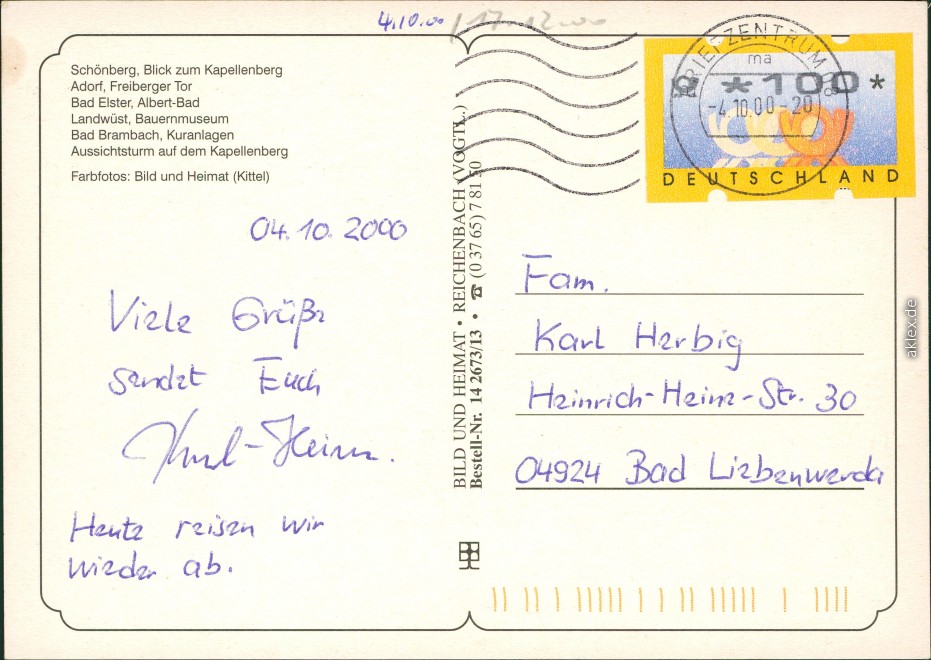 4.10.00 / 17.12.00
Schönberg, Blick zum Kapellenberg
Adorf, Freiberger Tor
Bad Elster, Albert-Bad
Landwüst, Bauernmuseum
Bad Brambach, Kuranlagen
Aussichtsturm auf dem Kapellenberg
Farbfotos: Bild und Heimat (Kittel)
04.10.2000
Viele Grüße
sendet Euch
Karl-Heinz.
Heute reisen wir
wieder ab.
BILD UND HEIMAT • REICHENBACH (VOGTL.)
Bestell-Nr. 14 2673/13 • ☎ (0 37 65) 7 81 50
BRIEFZENTRUM
ma
-4.10.00-20
*100*
DEUTSCHLAND
Fam.
Karl Herbig
Heinrich-Heine-Str. 30
04924 Bad Liebenwerda
aklex.de